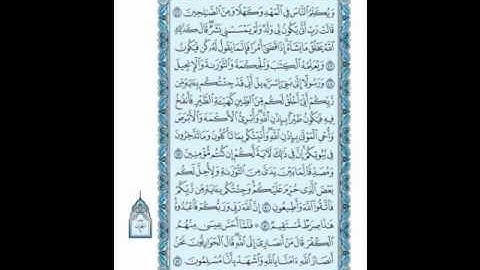 وَيُكَلِّمُ ٱلنَّاسَ فِى ٱلْمَهْدِ وَكَهْلًا وَمِنَ ٱلصَّٰلِحِينَ
قَالَتْ رَبِّ أَنَّىٰ يَكُونُ لِى وَلَدٌ وَلَمْ يَمْسَسْنِى بَشَرٌ قَالَ كَذَٰلِكِ
ٱللَّهُ يَخْلُقُ مَا يَشَآءُ إِذَا قَضَىٰٓ أَمْرًا فَإِنَّمَا يَقُولُ لَهُۥ كُن فَيَكُونُ
وَيُعَلِّمُهُ ٱلْكِتَٰبَ وَٱلْحِكْمَةَ وَٱلتَّوْرَىٰةَ وَٱلْإِنجِيلَ
وَرَسُولًا إِلَىٰ بَنِىٓ إِسْرَٰٓءِيلَ أَنِّى قَدْ جِئْتُكُم بِـَٔايَةٍ مِّن
رَّبِّكُمْ أَنِّىٓ أَخْلُقُ لَكُم مِّنَ ٱلطِّينِ كَهَيْـَٔةِ ٱلطَّيْرِ فَأَنفُخُ
فِيهِ فَيَكُونُ طَيْرًۢا بِإِذْنِ ٱللَّهِ وَأُبْرِئُ ٱلْأَكْمَهَ وَٱلْأَبْرَصَ
وَأُحْىِ ٱلْمَوْتَىٰ بِإِذْنِ ٱللَّهِ وَأُنَبِّئُكُم بِمَا تَأْكُلُونَ وَمَا تَدَّخِرُونَ
فِى بُيُوتِكُمْ إِنَّ فِى ذَٰلِكَ لَـَٔايَةً لَّكُمْ إِن كُنتُم مُّؤْمِنِينَ
وَمُصَدِّقًا لِّمَا بَيْنَ يَدَىَّ مِنَ ٱلتَّوْرَىٰةِ وَلِأُحِلَّ لَكُم
بَعْضَ ٱلَّذِى حُرِّمَ عَلَيْكُمْ وَجِئْتُكُم بِـَٔايَةٍ مِّن رَّبِّكُمْ
فَٱتَّقُوا۟ ٱللَّهَ وَأَطِيعُونِ إِنَّ ٱللَّهَ رَبِّى وَرَبُّكُمْ فَٱعْبُدُوهُ
هَٰذَا صِرَٰطٌ مُّسْتَقِيمٌ فَلَمَّآ أَحَسَّ عِيسَىٰ مِنْهُمُ
ٱلْكُفْرَ قَالَ مَنْ أَنصَارِىٓ إِلَى ٱللَّهِ قَالَ ٱلْحَوَارِيُّونَ نَحْنُ
أَنصَارُ ٱللَّهِ ءَامَنَّا بِٱللَّهِ وَٱشْهَدْ بِأَنَّا مُسْلِمُونَ